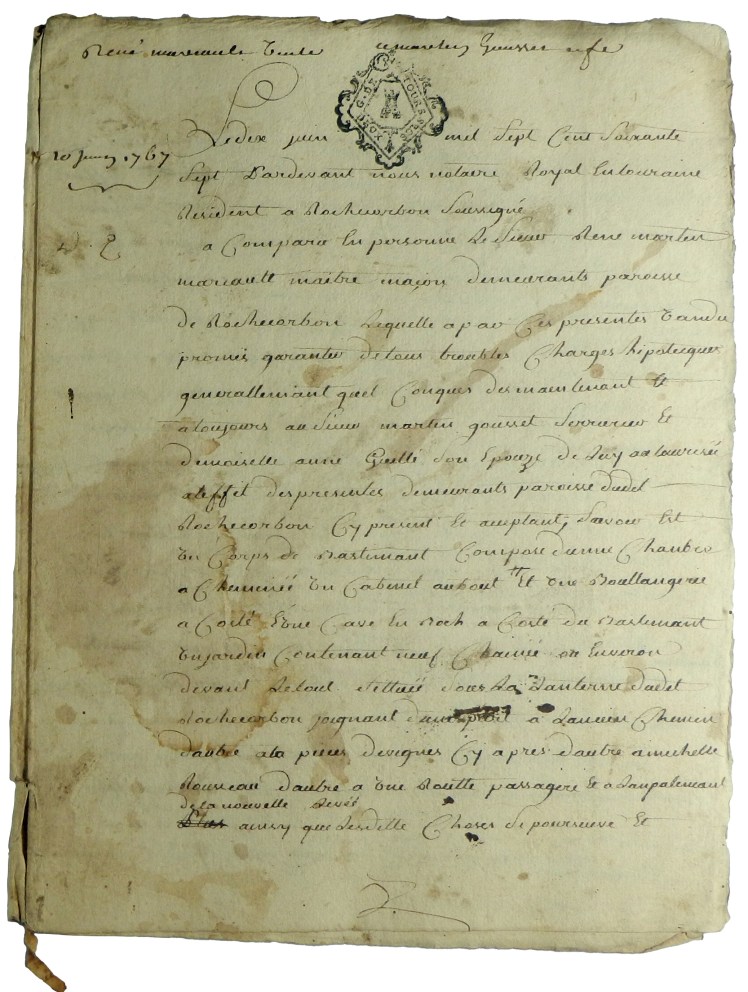 René mariault vente a martin Gousset & fe
G. DE TOURS
Le dix juin mil Sept Cent Soixante
10 juin 1767
Sept Pardevant nous notaire Royal En touraine
Resident a Rochecorbon Soussigné
a Comparu En personne Le Sieur René martin
mariault maitre maçon demeurants paroisse
de Rochecorbon Lequelle a par Ces presentes Vandu
promis garantir de tous troubles Charges hipotecques
generallemant quel Conques des maintenant Et
a toujours au Sieur martin gousset Serrurier Et
demoiselle anne Son Epouze de Luy autaurisée
a leffet des presentes demeurants paroisse dudit
Rochecorbon Cy present Et aceptant, Savoir Est
Un Corps de Bastimant Compose dunne Chambre
a Cheminée Un Cabinet au bout Et une Boullangerie
a Costé Une Cave En Roch a Costé du Bastimant
Un jardin Contenant neuf Chainée ou Environ
devant Le tout scittuée sous La Lanterne dudit
Rochecorbon joignant d'une part a Lancien Chemin
dautre a la pieces de vignes Cy apres dautre a michelle
Rousseau dautre a Une Routte passagere Et a Lanpalemant
de la nouvelle Levée
ainsy que Lesditte Choses Se poursuive Et